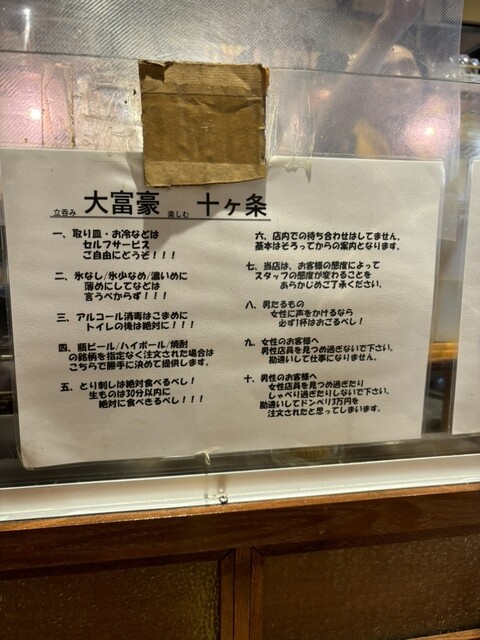 立呑み 大富豪 楽しむ 十ヶ条
一、取り皿・お冷などは
セルフサービス
ご自由にどうぞ!!!
二、氷なし/氷少なめ/濃いめに
薄めにしてなどは
言うべからず!!!
三、アルコール消毒はこまめに
トイレの後は絶対に!!!
四、瓶ビール/ハイボール/焼酎
の銘柄を指定なく注文された場合は
こちらで勝手に決めて提供します。
五、とり刺しは絶対食べるべし!
生ものは30分以内に
絶対に食べきるべし!!!
六、店内での待ち合わせはしてません。
基本はそろってからの案内となります。
七、当店は、お客様の態度によって
スタッフの態度が変わることを
あらかじめご了承ください。
八、男たるもの
女性に声をかけるなら
必ず1杯はおごるべし!
九、女性のお客様へ
男性店員を見つめ過ぎないで下さい。
勘違いして仕事になりません。
十、男性のお客様へ
女性店員を見つめ過ぎたり
しゃべり過ぎたりしないで下さい。
勘違いしてドンペリ3万円を
注文されたと思ってしまいます。